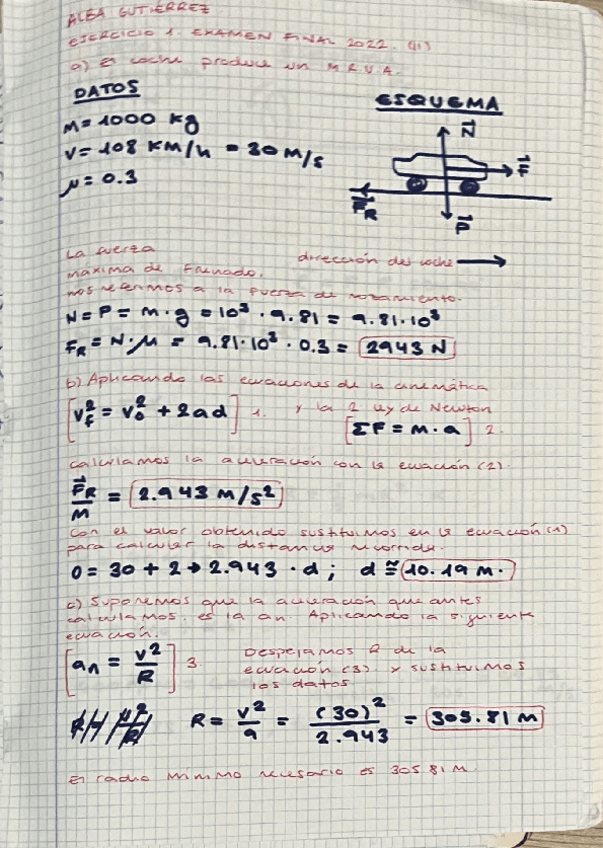 ALBA GUTIÉRREZ
EJERCICIO 1. EXAMEN FINAL 2022. (II)
a) El coche produce un M.R.U.A.
DATOS
ESQUEMA
M = 1000 Kg
V = 108 KM/h = 30 M/s
μ = 0.3
N
F
F_R
P
dirección del coche
La fuerza
máxima de Frenado,
nos referimos a la fuerza de rozamiento.
N = P = m · g = 10³ · 9.81 = 9.81 · 10³
F_R = N · μ = 9.81 · 10³ · 0.3 = 2943 N
b) Aplicando las ecuaciones de la cinemática
[V_f² = V_0² + 2ad] 1. y la 2 ley de Newton
[ΣF = m · a] 2.
calculamos la aceleración con la ecuación (2).
F_R/M = 2.943 M/s²
Con el valor obtenido sustituimos en la ecuación (1)
para calcular la distancia recorrida.
0 = 30 + 2 → 2.943 · d ; d ≅ 10.19 M.
c) Suponemos que la aceleración que antes
calculamos, es la an. Aplicando la siguiente
ecuación.
[a_n = V²/R] 3.
Despejamos R de la
ecuación (3) y sustituimos
los datos.
R = V²/a = (30)²/2.943 = 305.81 M
El radio mínimo necesario es 305.81 M.